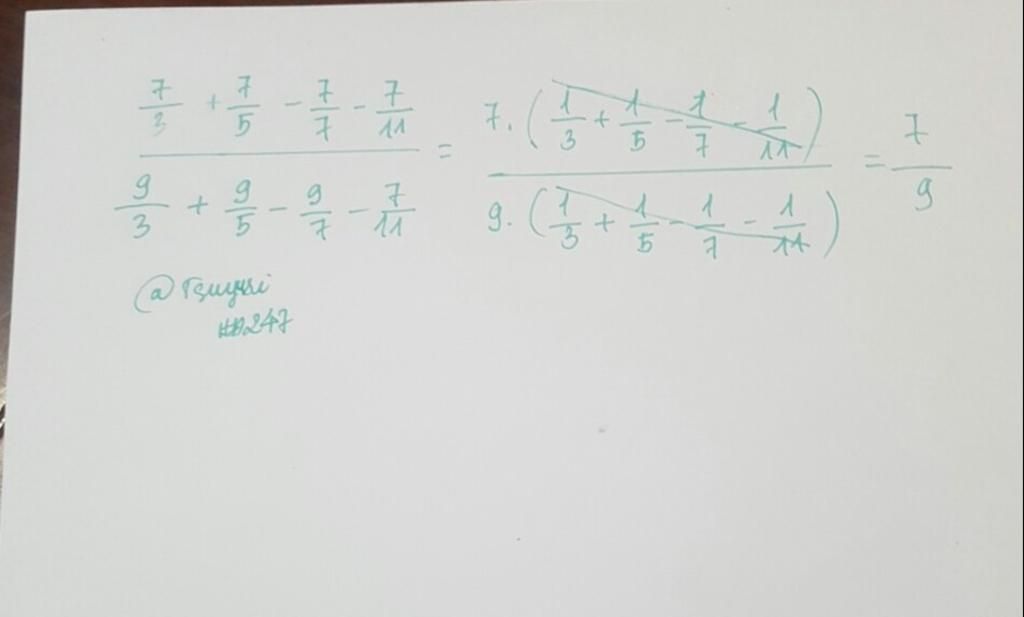 7/3 + 7/5 - 7/7 - 7/11 / 9/3 + 9/5 - 9/7 - 7/11 = 7.(1/3 + 1/5 - 1/7 - 1/11) / 9.(1/3 + 1/5 - 1/7 - 1/11) = 7/9